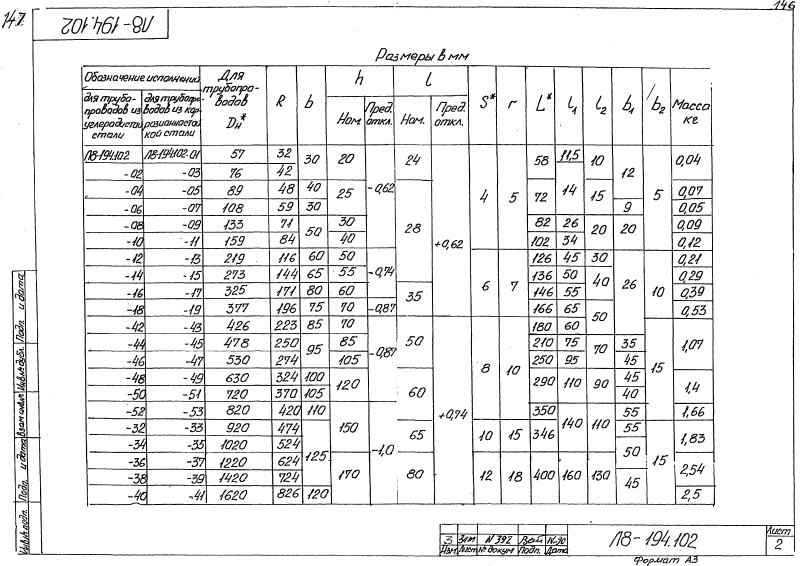 147.
146
Л8-194.102
Размеры в мм
Обозначение исполнений
для трубопроводов из углеродистой стали
для трубопроводов из коррозионностойкой стали
Для трубопроводов Dн*
R
b
h
Ном.
Пред. откл.
l
Ном.
Пред. откл.
S*
r
L*
l1
l2
b1
b2
Масса кг
Л8-194.102 Л8-194.102-01 57 32 30 20 -0,62 24 +0,62 4 5 58 11,5 10 12 5 0,04
-02 -03 76 42
-04 -05 89 48 40 25 28 72 14 15 0,07
-06 -07 108 59 30 9 0,05
-08 -09 133 71 50 30 82 26 20 20 0,09
-10 -11 159 84 40 102 34 0,12
-12 -13 219 116 60 50 -0,74 6 7 126 45 30 26 10 0,21
-14 -15 273 144 65 55 136 50 40 0,29
-16 -17 325 171 80 60 35 146 55 0,39
-18 -19 377 196 75 70 -0,87 166 65 50 0,53
-42 -43 426 223 85 70 -0,87 50 +0,74 8 10 180 60 15 1,07
-44 -45 478 250 95 85 210 75 70 35
-46 -47 530 274 105 250 95 45
-48 -49 630 324 100 120 60 290 110 90 45 1,4
-50 -51 720 370 105 40
-52 -53 820 420 110 150 -1,0 350 140 110 55 1,66
-32 -33 920 474 125 65 10 15 346 55 15 1,83
-34 -35 1020 524 50
-36 -37 1220 624 170 80 12 18 400 160 130 2,54
-38 -39 1420 724 45
-40 -41 1620 826 120 2,5
Инв.№ подл. Подп. и дата Взам.инв.№ Инв.№ дубл. Подп. и дата
3 Зам N392
Изм Лист № докум Подп. Дата
Л8-194.102
Лист
2
Формат А3